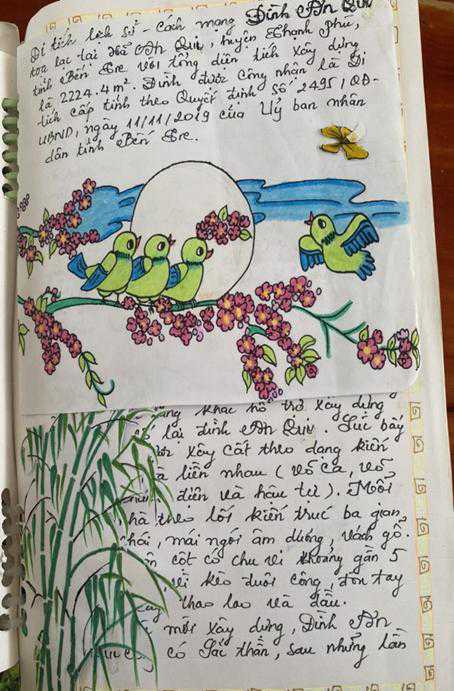 Di tích lịch sử - Cách mạng Đình An Qui
tọa lạc tại xã An Qui, huyện Thạnh Phú,
tỉnh Bến Tre với tổng diện tích xây dựng
là 2224.4m². Đình được công nhận là Di
tích cấp tỉnh theo Quyết định số 2495/QĐ-
UBND, ngày 11/11/2019 của Uỷ ban nhân
dân tỉnh Bến Tre.
khác hỗ trợ xây dựng
lại đình An Qui. Lúc bấy
xây cất theo dạng kiến
liền nhau (võ ca, võ
điện và hậu tự). Mỗi
theo lối kiến trúc ba gian
mái ngói âm dương, vách gỗ.
cột có chu vi khoảng gần 5
kèo đuôi công, đòn tay
thao lao và dầu.
mới xây dựng, Đình An
có Sắc thần, sau những lần